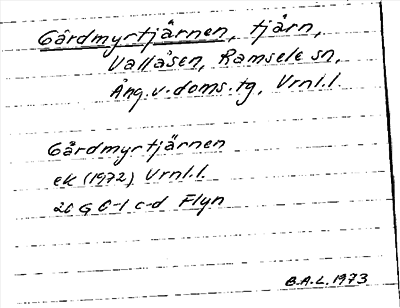 Gårdmyrtjärnen, tjärn,
Vallåsen, Ramsele sn,
Ång. v. doms. tg, Vrnl.l.
Gårdmyrtjärnen
ek (1972) Vrnl.l.
20 G 0-1 c-d Flyn
B.A.L. 1973